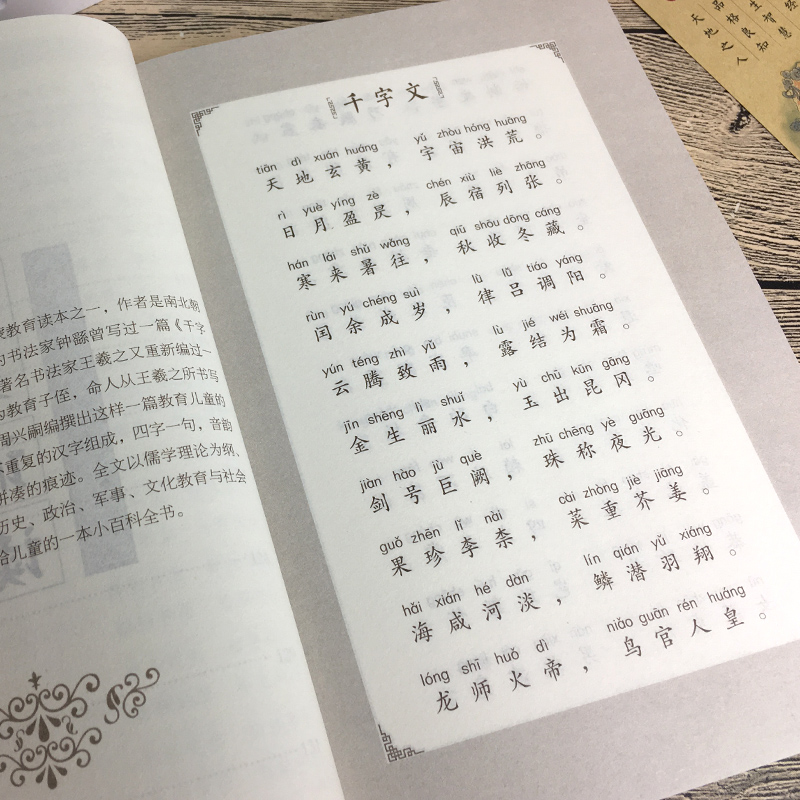 家教育读本之一，作者是南北朝
的书法家钟繇曾写过一篇《千字
著名书法家王羲之又重新编过一
为教育子侄，命人从王羲之所书写
周兴嗣编撰出这样一篇教育儿童的
不重复的汉字组成，四字一句，音韵
拼凑的痕迹。全文以儒学理论为纲、
历史、政治、军事、文化教育与社会
给儿童的一本小百科全书。
千字文
tiān dì xuán huáng yǔ zhòu hóng huāng
天地玄黄，宇宙洪荒。
rì yuè yíng zè chén xiù liè zhāng
日月盈昃，辰宿列张。
hán lái shǔ wǎng qiū shōu dōng cáng
寒来暑往，秋收冬藏。
rùn yú chéng suì lǜ lǚ tiáo yáng
闰余成岁，律吕调阳。
yún téng zhì yǔ lù jié wéi shuāng
云腾致雨，露结为霜。
jīn shēng lì shuǐ yù chū kūn gāng
金生丽水，玉出昆冈。
jiàn hào jù què zhū chēng yè guāng
剑号巨阙，珠称夜光。
guǒ zhēn lǐ nài cài zhòng jiè jiāng
果珍李柰，菜重芥姜。
hǎi xián hé dàn lín qián yǔ xiáng
海咸河淡，鳞潜羽翔。
lóng shī huǒ dì niǎo guān rén huáng
龙师火帝，鸟官人皇。
智慧
品格良知
天地之人